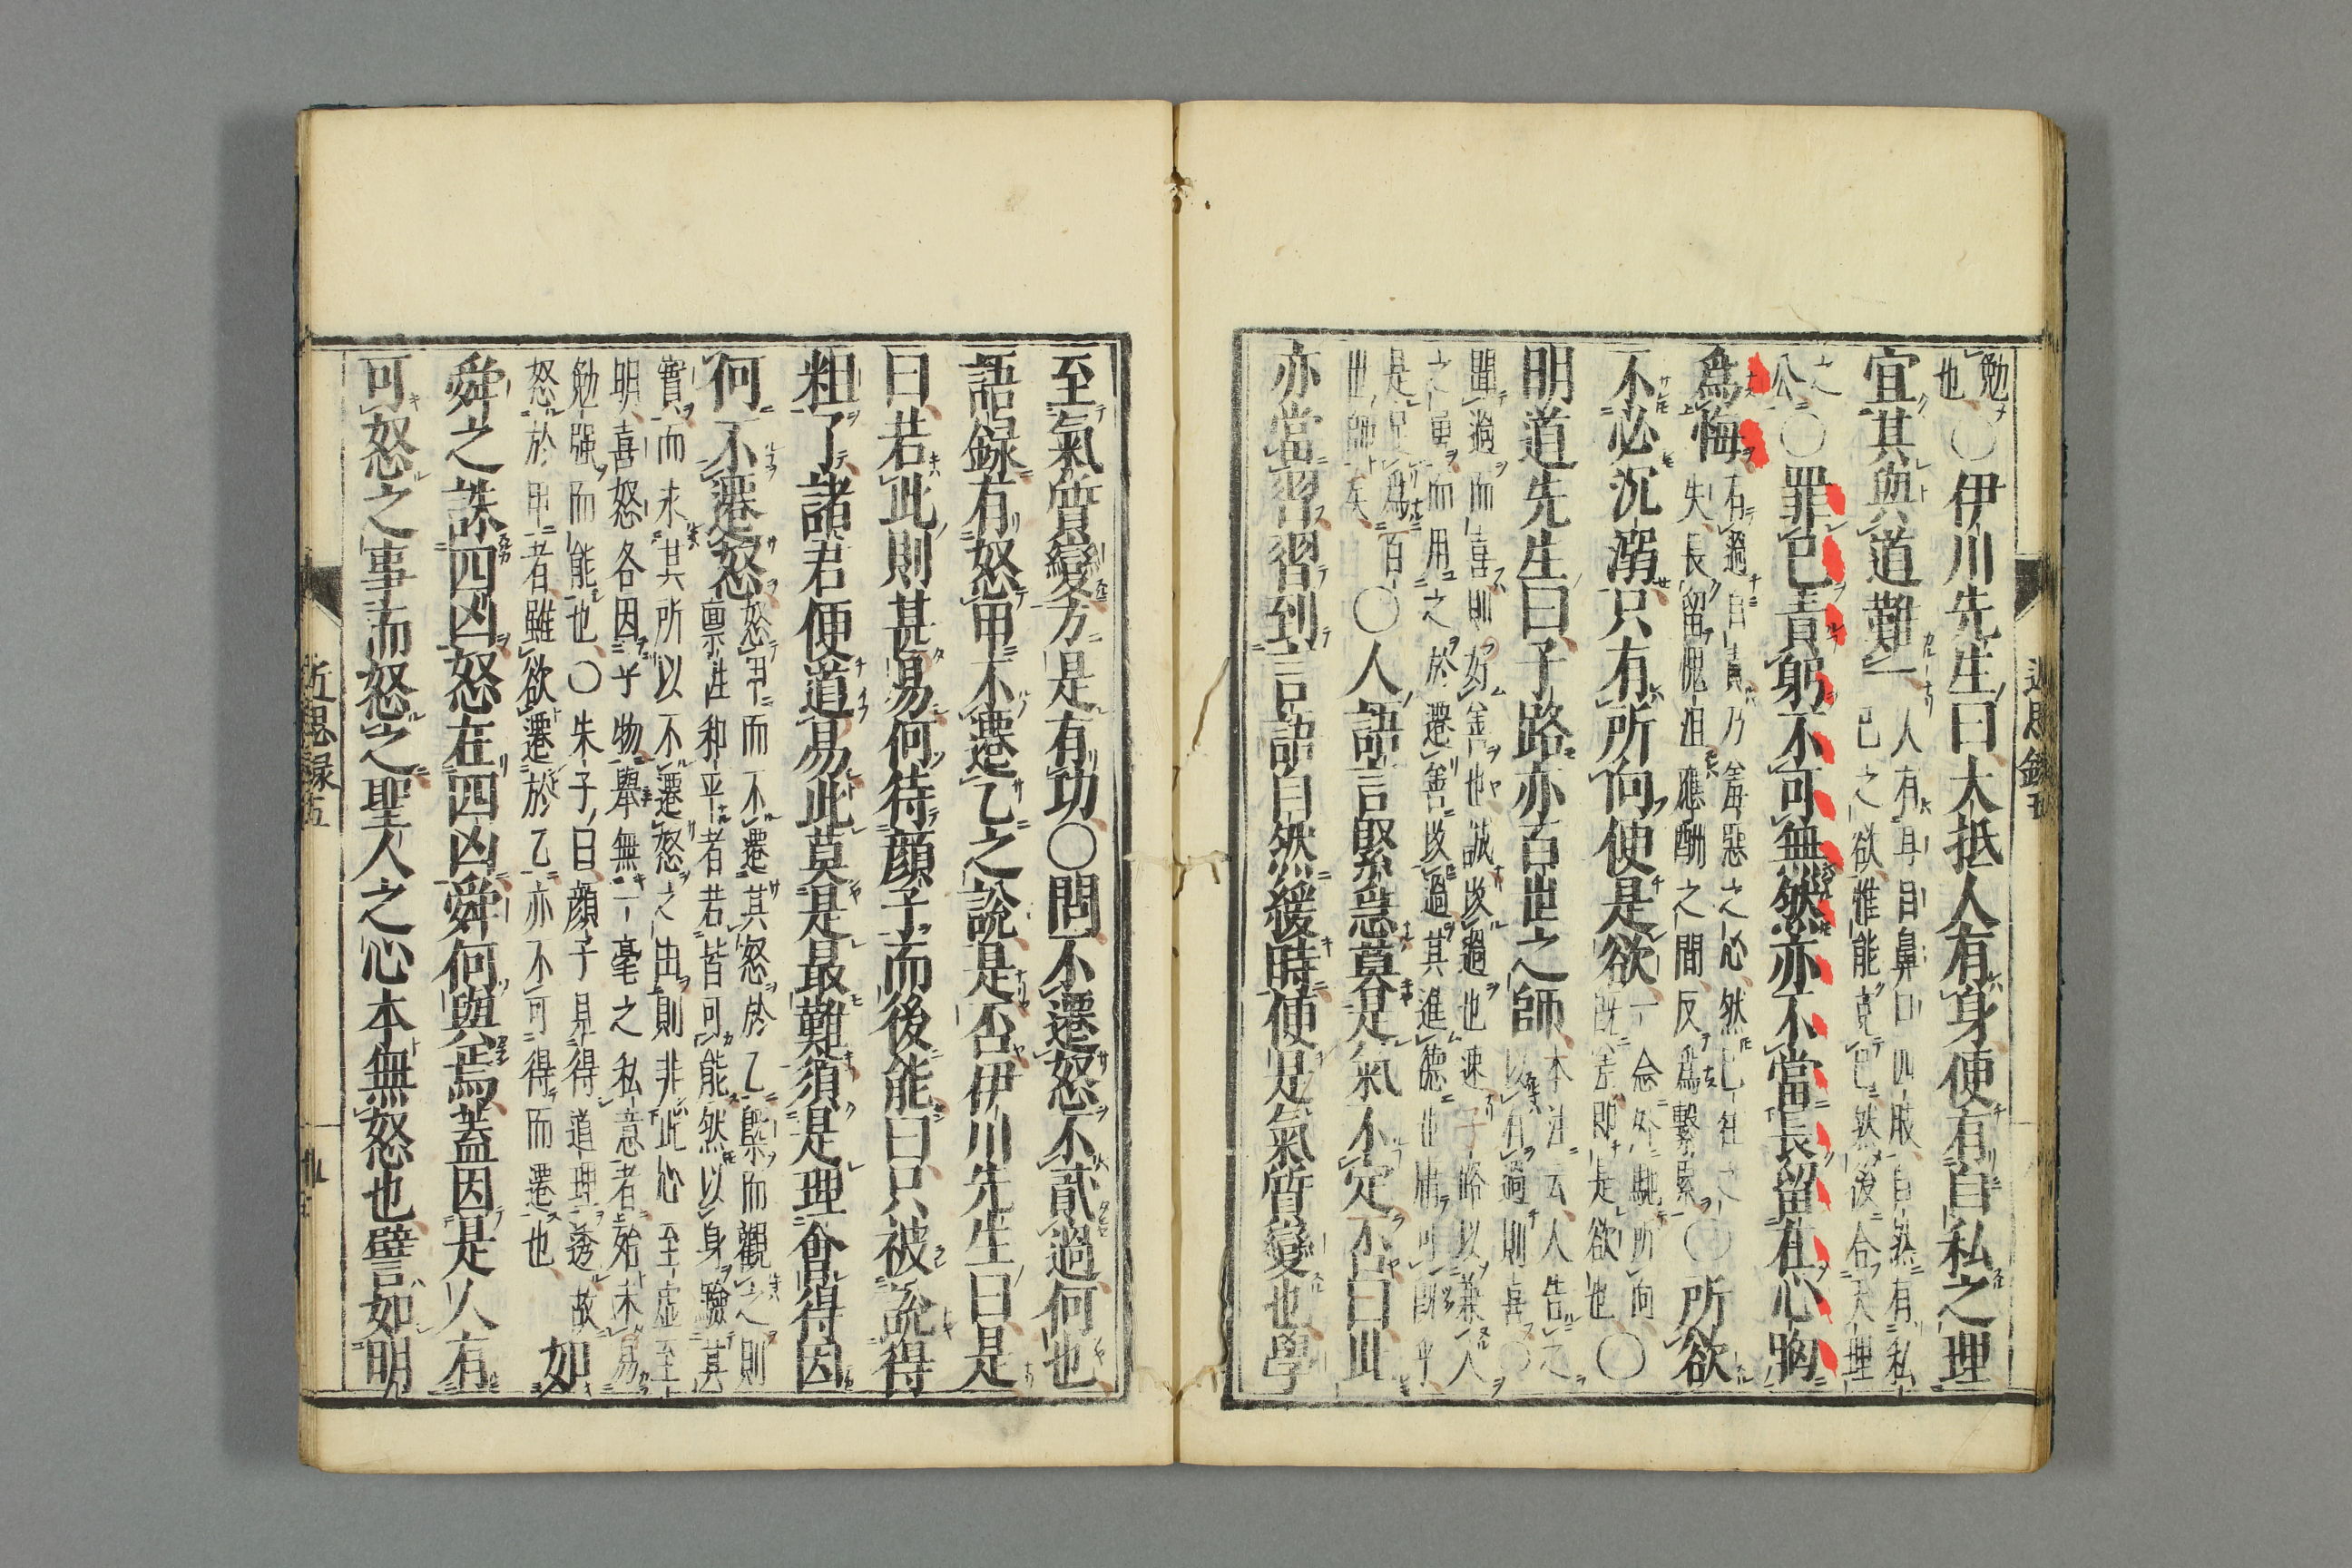 近思錄五
勉
也〇伊川先生曰大抵人有身便有自私之理
宜其與道難一人有耳目鼻口四肢自然有私
己之欲惟能克己然後合天理
之
公〇罪己責躬不可無然亦不當長留在心胸
爲悔有過自責乃羞惡之心然已往之
失長留愧沮應酬之間反爲繫累〇所欲
不必沉溺只有所向便是欲一念外馳所向
既差即是欲也〇
明道先生曰子路亦百世之師本注云人告之
以有過則喜〇
聞過而喜則好善也誠改過也速子路以兼人
之勇而用之於遷善改過其進德也
是足爲百
世師矣〇人語言緊急莫是氣不定否曰此
亦當習習到言語自然緩時便是氣質變也學
至氣質變方是有功〇問不遷怒不貳過何也
語録有怒甲不遷乙之說是否伊川先生曰是
曰若此則甚易何待顔子而後能曰只被說得
粗了諸君便道易此莫是最難須是理會得因
何不遷怒怒甲而不遷其怒於乙槩而觀之則
禀性和平者若皆可能然以身驗其
實而求其所以不遷怒之由則非此心至虚至
明喜怒各因乎物舉無一毫之私意者殆未易
勉强而能也〇朱子曰顔子見得道理透故
怒於甲者雖欲遷於乙亦不可得而遷也如
舜之誅四凶怒在四凶舜何與焉蓋因是人有
可怒之事而怒之聖人之心本無怒也譬如明
近思録五